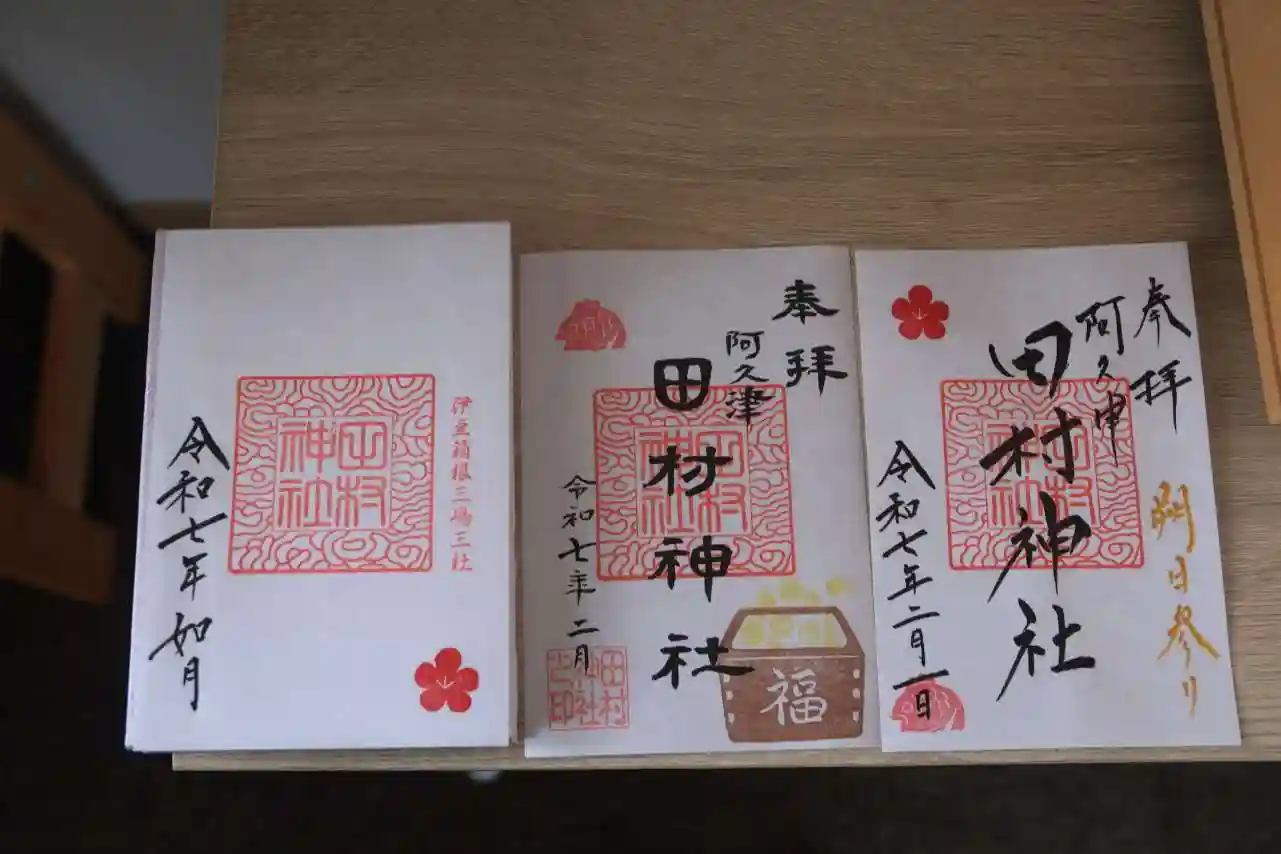 伊豆箱根三嶋三社
田村
神社
令和七年如月
奉拝
阿久津
田村神社
田村
神社
令和七年二月
田村
神社
之印
福
奉拝
朔日参り
阿久津
田村神社
田村
神社
令和七年二月一日